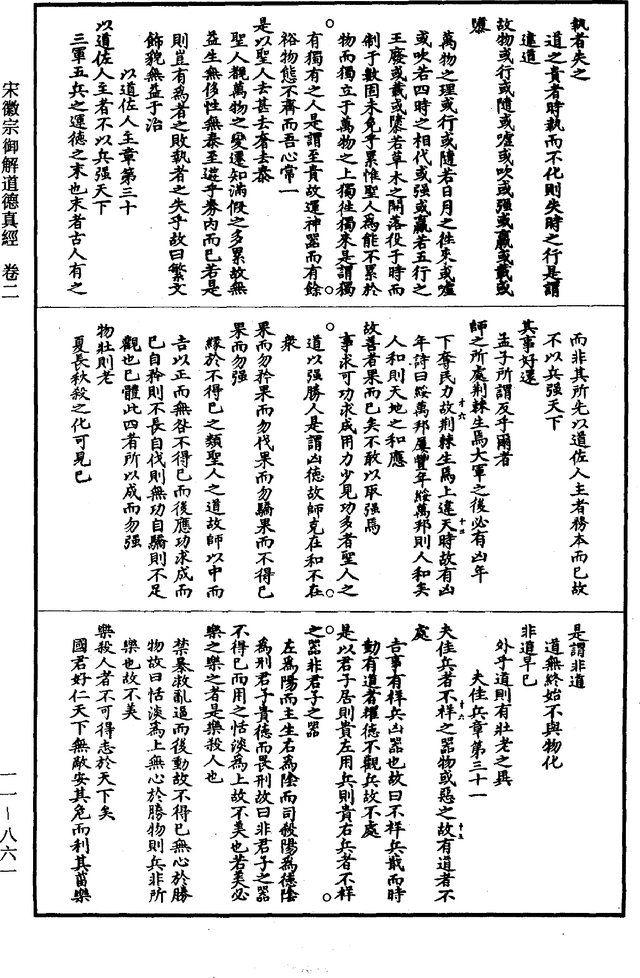 執者失之
道之貴者時執而不化則失時之行是謂
違道
故物或行或隨或噓或吹或强或羸或載或
隳
萬物之理或行或隨若日月之徃來或噓
或吹若四時之相代或强或羸若五行之
王廢或載或隳若草木之開落役于時而
制于數固未免乎累惟聖人為能不累於
物而獨立于萬物之上獨徃獨來是謂獨
有獨有之人是謂至貴故運神器而有餘
裕物態不齊而吾心常一
是以聖人去甚去奢去泰
聖人覩萬物之變遷知滿假之多累故無
益生無侈性無泰至遊乎券內而已若是
則豈有為者之敗執者之失乎故曰繁文
飾貌無益于治
以道佐人主章第三十
以道佐人主者不以兵强天下
三軍五兵之運德之末也末者古人有之
而非其所先以道佐人主者務本而已故
不以兵强天下
其事好還
孟子所謂反乎爾者
師之所處荆棘生焉大軍之後必有凶年
下奪民力故荆棘生焉上違天時故有凶
年詩曰綏萬邦屢豐年綏萬邦則人和矣
人和則天地之和應
故善者果而已矣不敢以取强焉
事求可功求成用力少見功多者聖人之
道以强勝人是謂凶德故師克在和不在
衆
果而勿矜果而勿伐果而勿驕果而不得已
果而勿强
緣於不得已之類聖人之道故師以中而
吉以正而無咎不得已而後應功求成而
已自矜則不長自伐則無功自驕則不足
觀也已體此四者所以成而勿强
物壯則老
夏長秋殺之化可見已
是謂非道
道無終始不與物化
非道早已
外乎道則有壯老之異
夫佳兵章第三十一
夫佳兵者不祥之器物或惡之故有道者不
處
吉事有祥兵凶器也故曰不祥兵戢而時
動有道者耀德不觀兵故不處
是以君子居則貴左用兵則貴右兵者不祥
之器非君子之器
左為陽而主生右為陰而司殺陽為德陰
為刑君子貴德而畏刑故曰非君子之器
不得已而用之恬淡為上故不美也若美必
樂之樂之者是樂殺人也
禁暴救亂逼而後動故不得已無心於勝
物故曰恬淡為上無心於勝物則兵非所
樂也故不美
樂殺人者不可得志於天下矣
國君好仁天下無敵安其危而利其菑樂
宋徽宗御解道德真經　卷二
一一—八六一